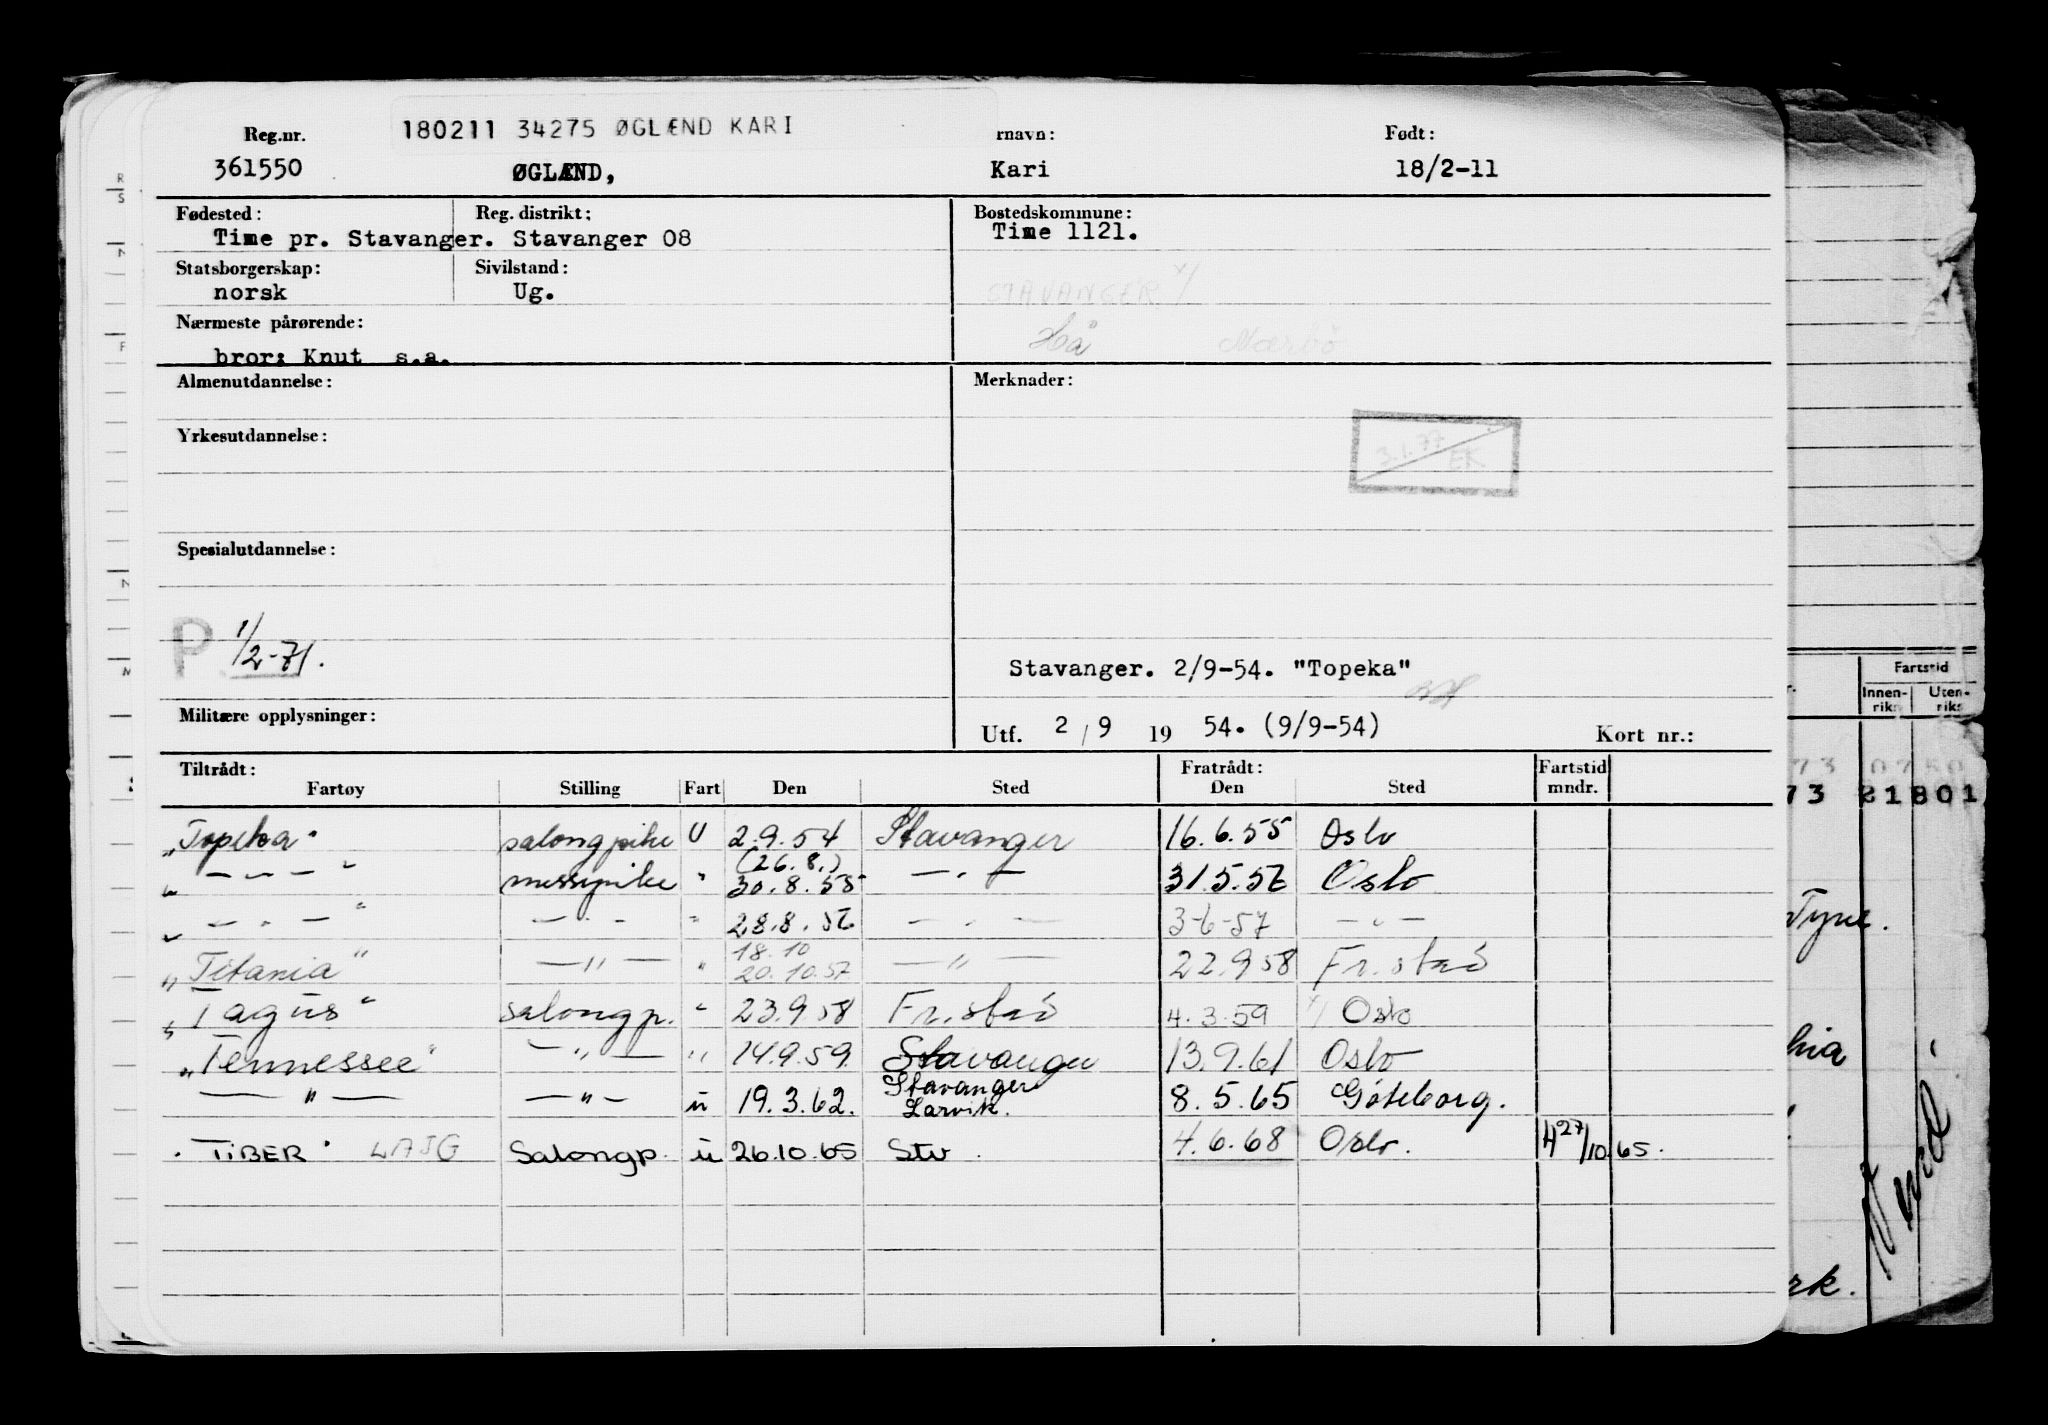 180211 34275 ØGLÆND KARI
Reg.nr. rnavn: Født:
361550 ØGLÆND, Kari 18/2-11
Fødested: Reg. distrikt: Bostedskommune:
Time pr. Stavanger. Stavanger 08 Time 1121.
Statsborgerskap: Sivilstand: STAVANGER x/
norsk Ug.
Nærmeste pårørende: Hå Nærbö
bror: Knut s.a.
Almenutdannelse: Merknader:
Yrkesutdannelse: 3.1.77 EK
Spesialutdannelse:
P 1/2-71.
Stavanger. 2/9-54. "Topeka"
Militære opplysninger:
Utf. 2/9 19 54. (9/9-54) Kort nr.:
Tiltrådt: Fratrådt: Fartstid
Fartøy Stilling Fart Den Sted Den Sted mndr.
"Topeka" salongpike U 2.9.54 Stavanger 16.6.55 Oslo
(26.8.)
" — " — " messepike " 30.8.55 — " — 31.5.56 Oslo
" — " — " — " — " 28.8.56 — " — 3-6-57 — " —
18.10
"Titania" — " — " 20.10.57 — " — 22.9.58 Fr.stad
"Tagus" salongp. " 23.9.58 Fr.stad 4.3.59 x/ Oslo
"Tennessee" — " — " 14.9.59 Stavanger 13.9.61 Oslo
— " — — " — u 19.3.62. Stavanger Larvik. 8.5.65 Göteborg.
"TIBER" LAJG Salongp. u 26.10.65 Stv. 4.6.68 Oslo. 4 27/10.65.
Fartstid
Innen-riks Uten-riks
73 21801
Tyne.